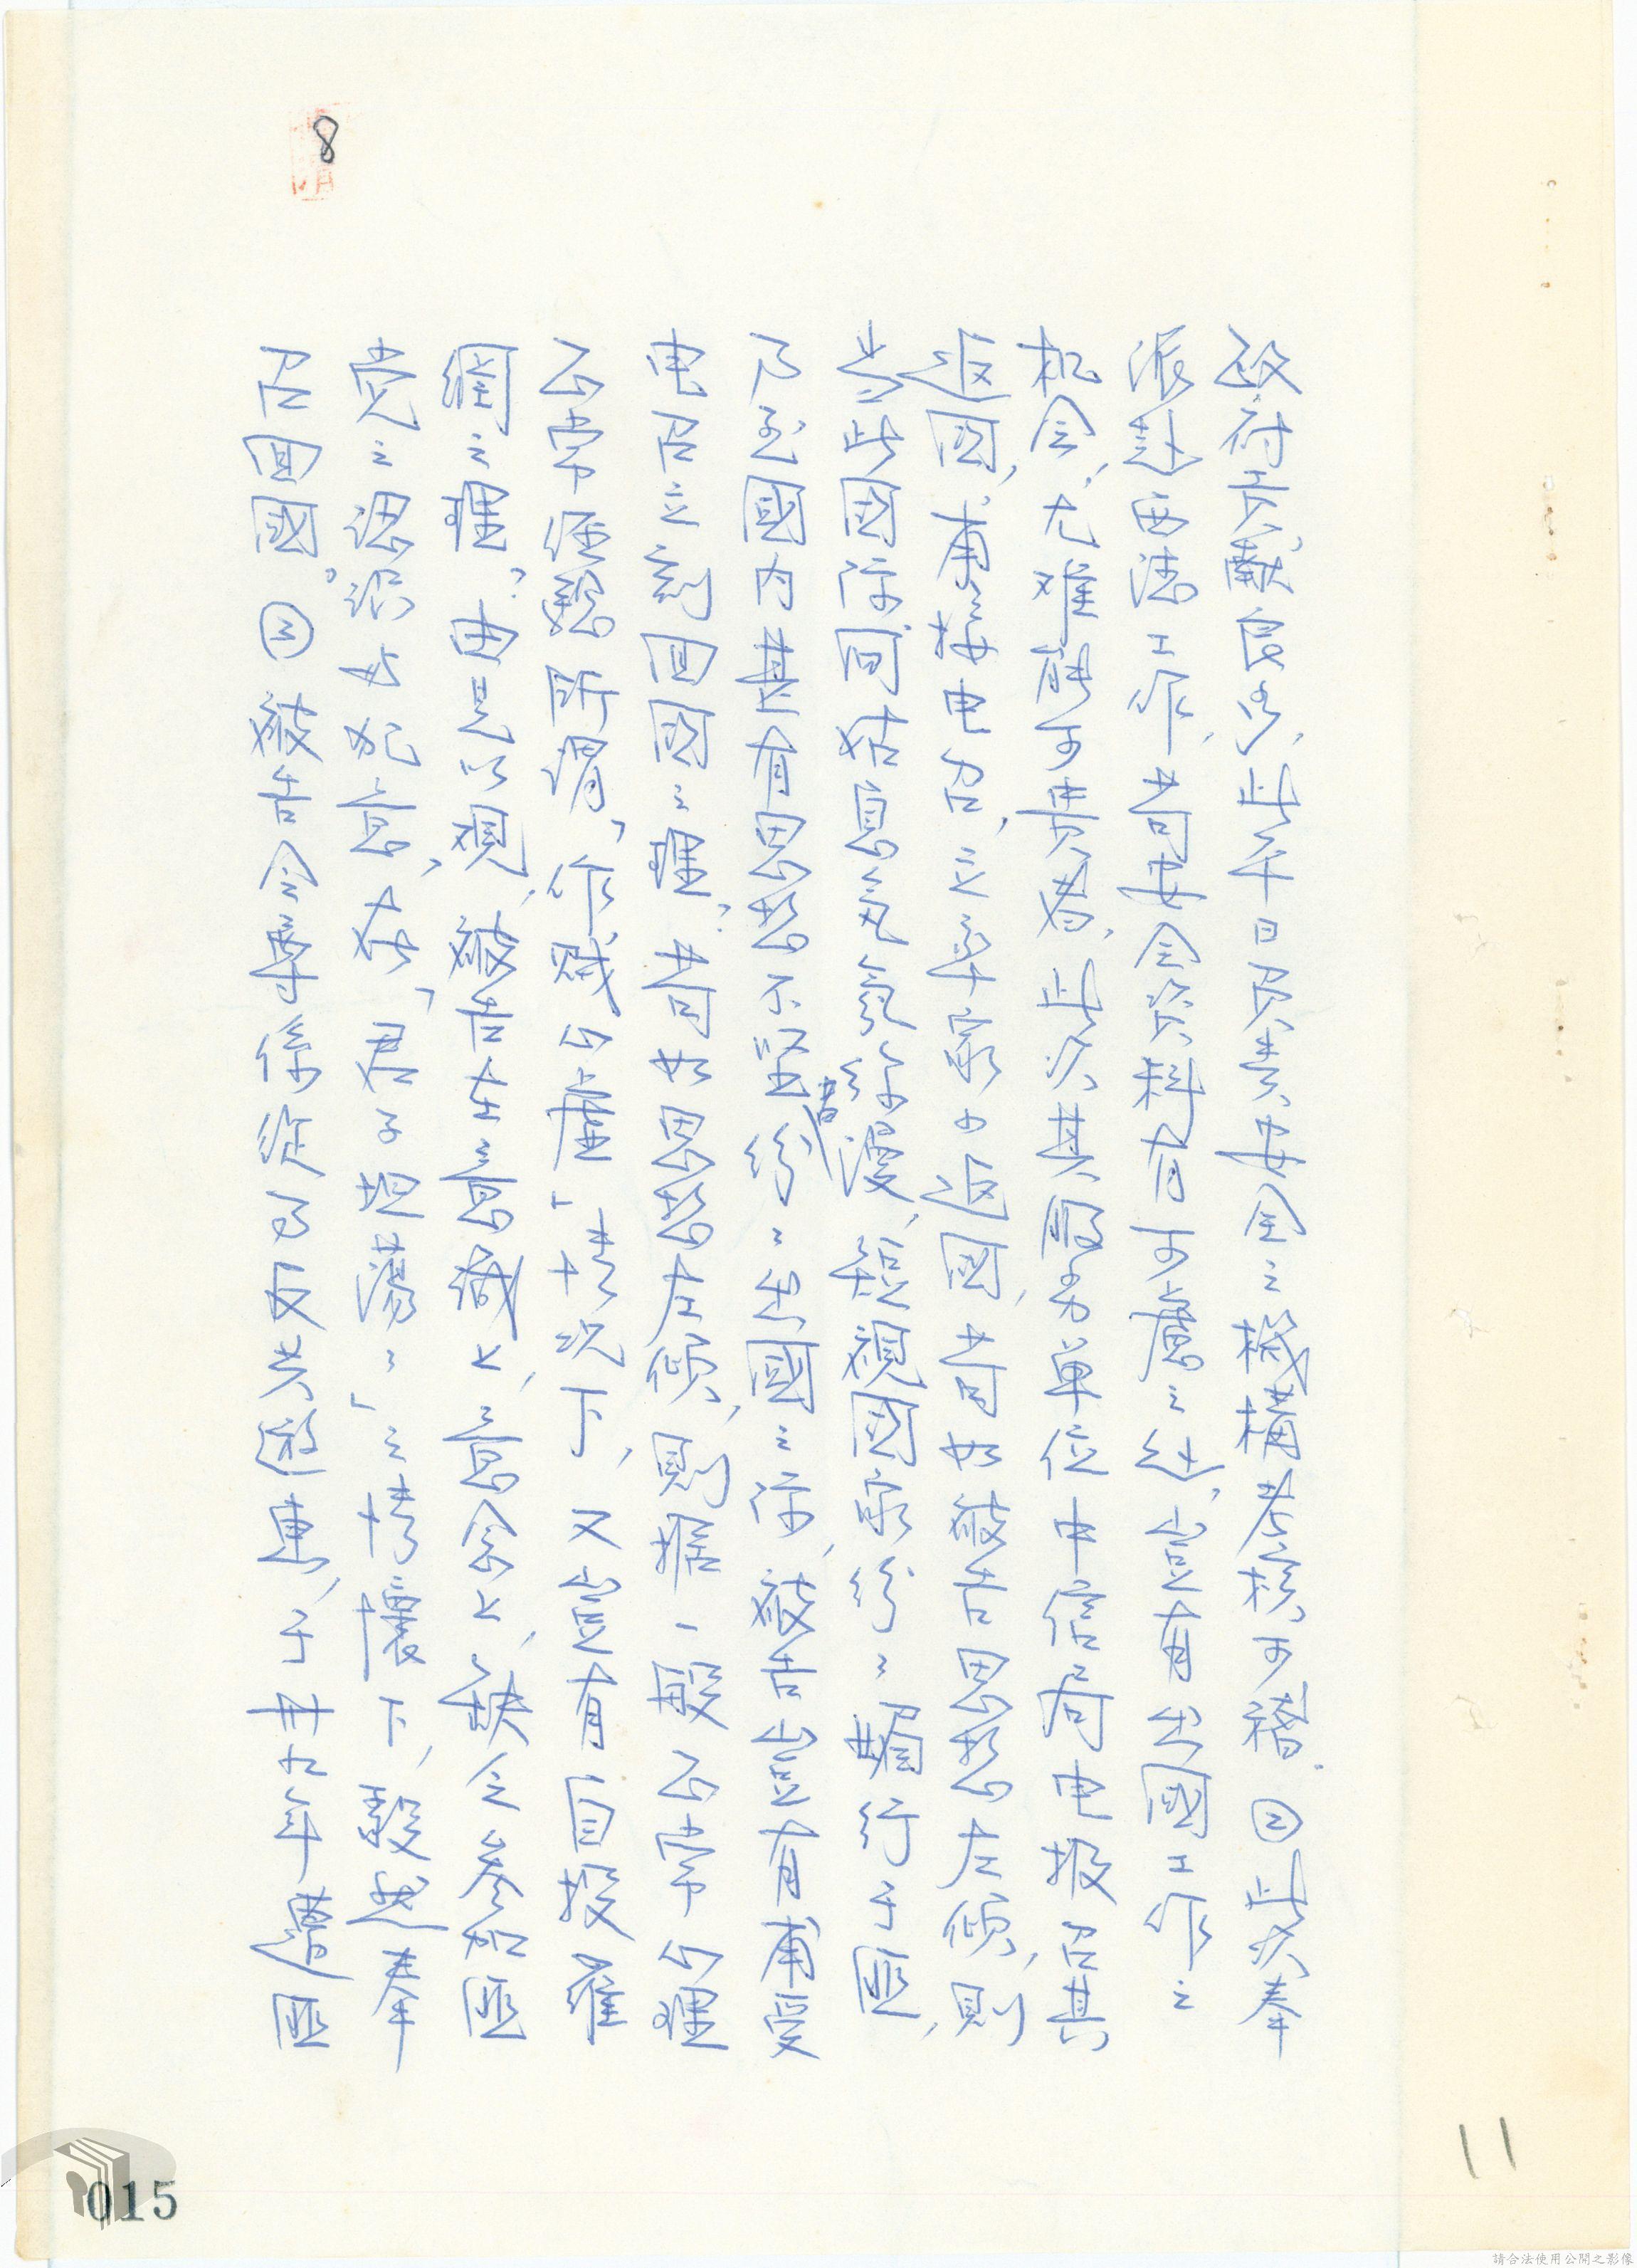 政府貢獻良少，此平日負責安全之機構考核可稽。㈡此次奉
派赴西德工作，苟安全資料有可慮之處，豈有出國工作之
机会，尤难能可貴者，此次其服务单位中信局电报召其
返國，甫接电召，立率家小返國，苟如被告思想左倾，則
当此国际间姑息氣氛弥漫，短視國家紛々媚行于匪，
乃至國内甚有思想不堅者紛々出國之际，被告豈有甫受
电召立刻回国之理？苟如思想左倾，則据一般正常心理
正常經驗所謂「作賊心虛」情况下，又豈有自投羅
網之理？由是以观，被告在意識上，意念上，缺乏參加匪
党之認识与犯意在「君子坦蕩々」之情懷下，毅然奉
召回國。㈢被告参加係死刑反共匪事，于卅九年遭匪
8
015
11
請合法使用公開之影像